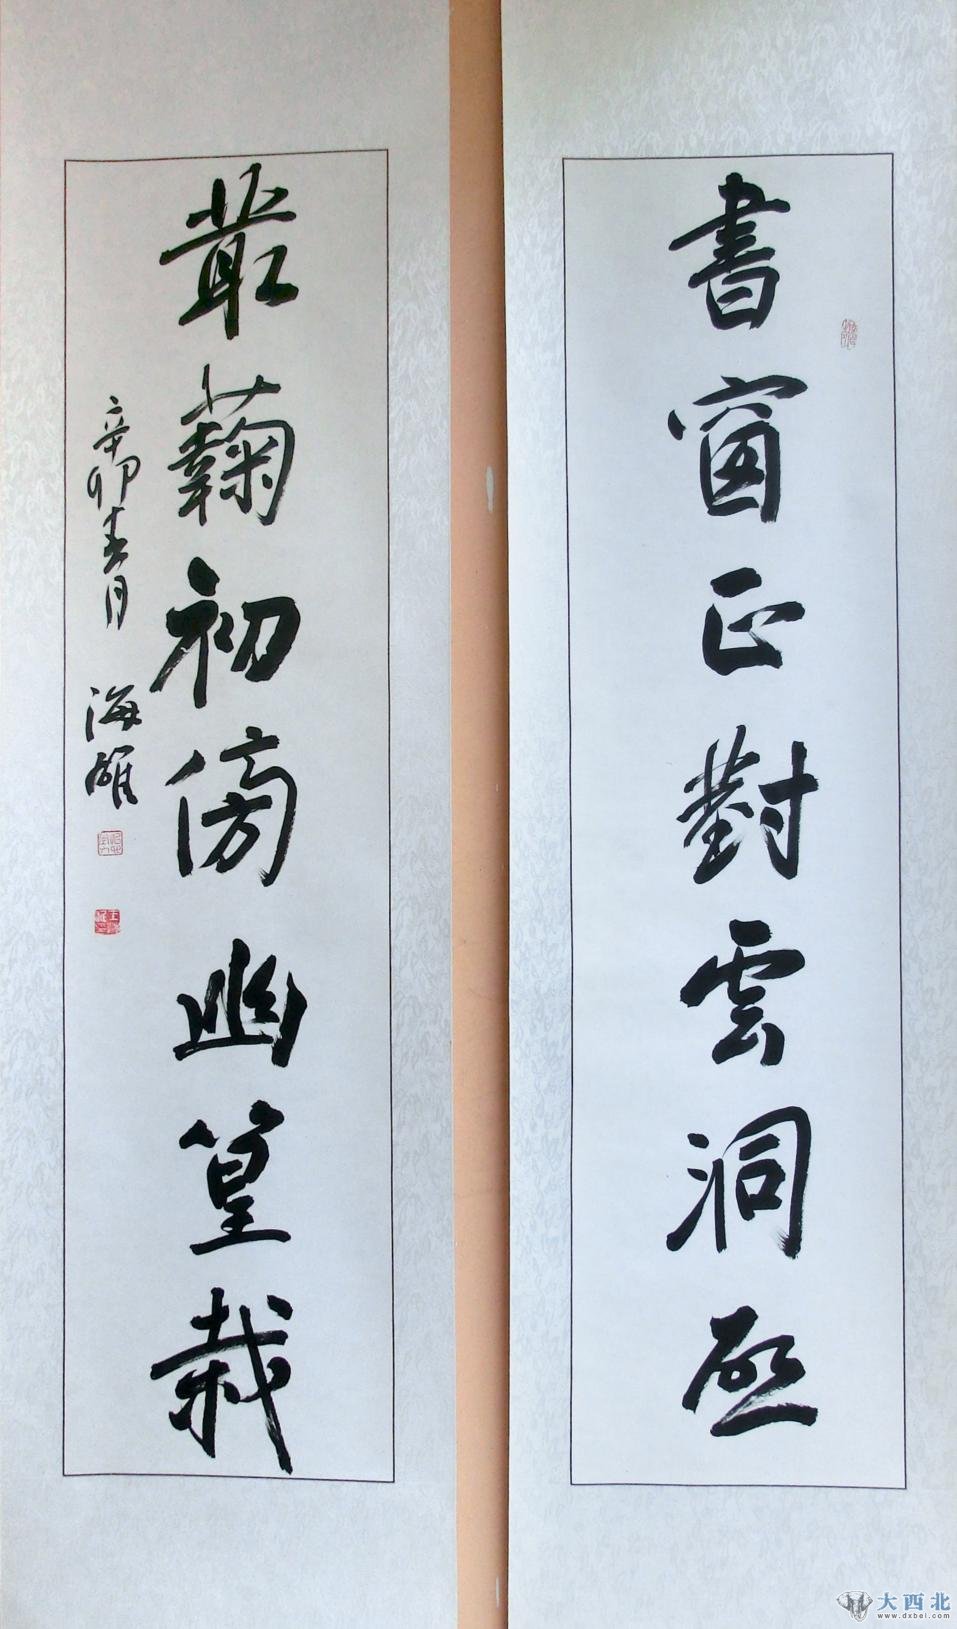 書窗正對雲洞啓
叢菊初傍幽篁栽
辛卯春月
海雄
大西北
www.dxbei.com